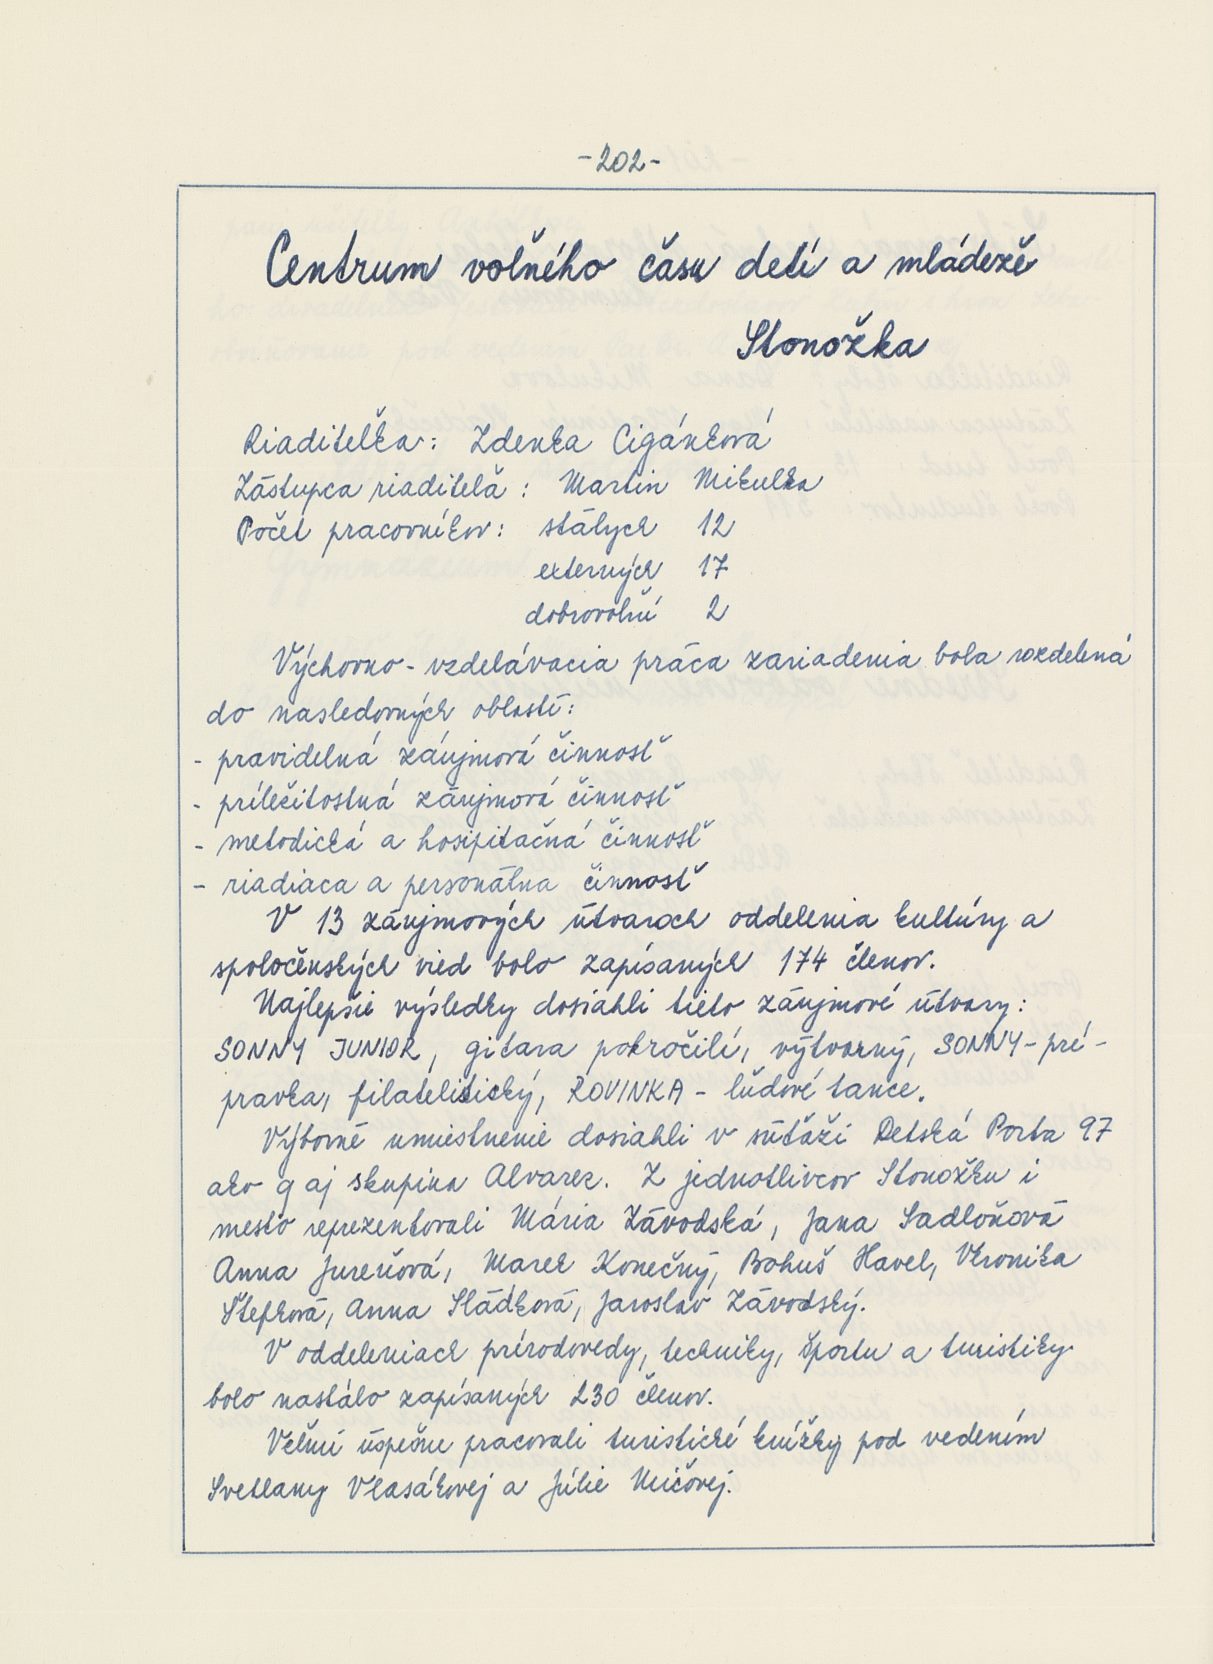 -202-
Centrum volného času detí a mládeže
Stonožka
Riaditeľka: Zdenka Cigánková
Zástupca riaditeľa: Martin Mikulka
Počet pracovníkov: stálych 12
externých 17
dobrovolní 2
Výchovno-vzdelávacia práca zariadenia bola rozdelená
do nasledovných oblastí:
- pravidelná záujmová činnosť
- príležitostná záujmová činnosť
- metodická a hospitačná činnosť
- riadiaca a personálna činnosť
V 13 záujmových útvaroch oddelenia kultúry a
spoločenských vied bolo zapísaných 174 členov.
Najlepšie výsledky dosiahli tieto záujmové útvary:
SONNY JUNIOR, gitara pokročilí, výtvarný, SONNY-prí-
pravka, filatelistický, ROVINKA - ľudové tance.
Výborné umiestnenie dosiahli v súťaži Detská Porta 97
ako aj skupina Alvarez. Z jednotlivcov Stonožku i
mesto reprezentovali Mária Závodská, Jana Sadloňová
Anna Jureňová, Marek Konečný, Bohuš Havel, Veronika
Štefková, Anna Sládková, Jaroslav Závodský.
V oddeleniach prírodovedy, techniky, športu a turistiky
bolo nastálo zapísaných 230 členov.
Veľmi úspešne pracovali turistické krúžky pod vedením
Svetlany Vlasákovej a Júlie Mičovej.